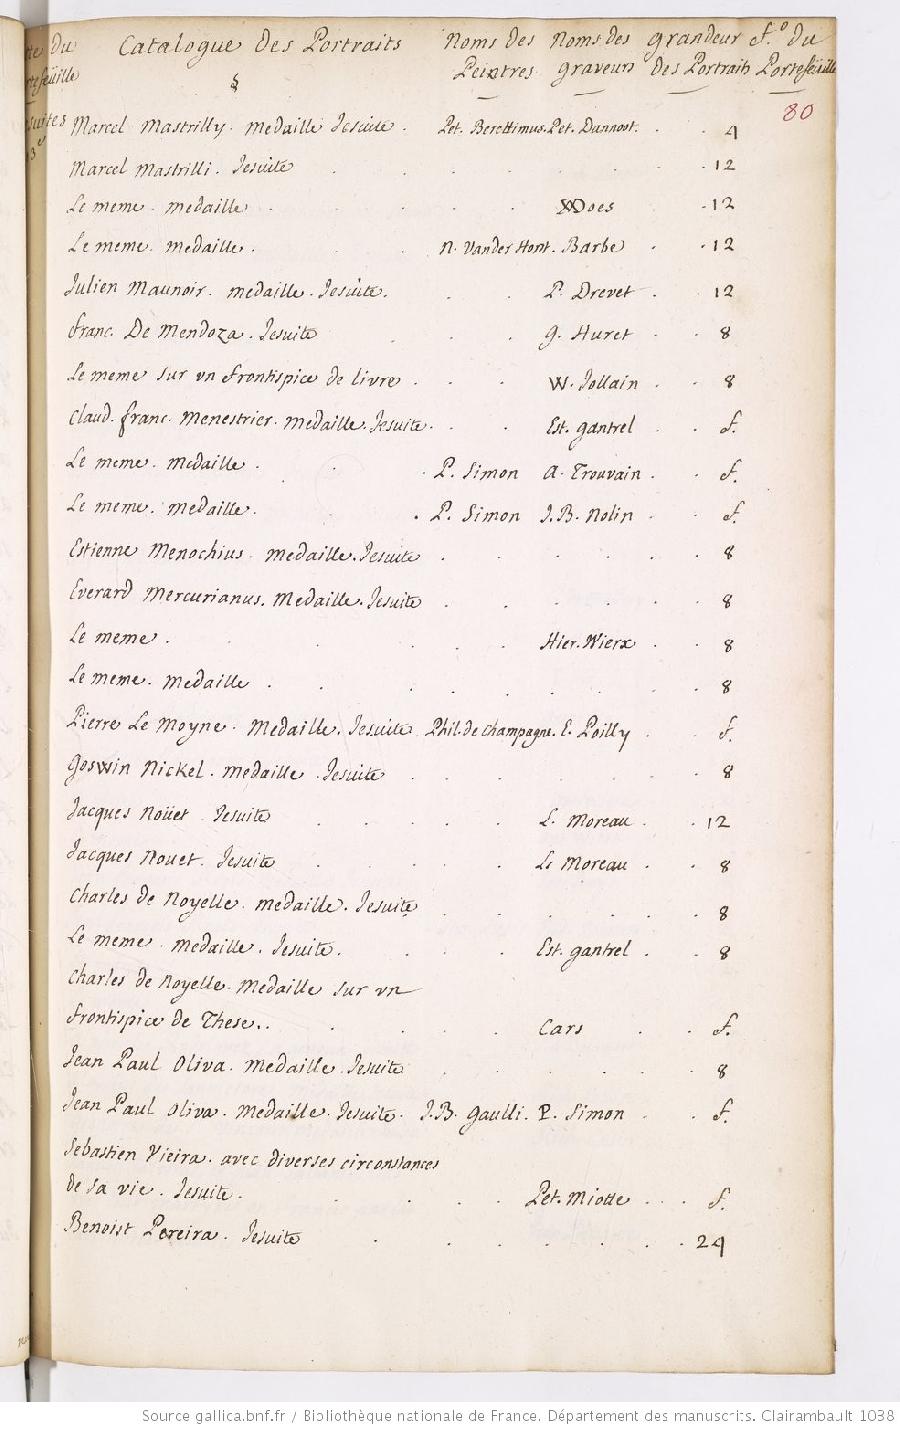 du Catalogue des Portraits Noms des Noms des grandeur f.º du
Peintres graveurs des Portraits Portefeüille
80
Marcel Mastrilly. medaille Jesuite. Pet. Berettimus. Pet. Dannoot. 4
Marcel Mastrilli. Jesuite 12
Le meme. medaille Does 12
Le meme. medaille. N. Vander Hont. Barbe 12
Julien Maunoir. medaille. Jesuite. P. Drevet. 12
franc. De Mendoza. Jesuite G. Huret 8
Le meme sur vn frontispice de livre. W. Jollain 8
Claud. franc. Menestrier. medaille. Jesuite. Est. gantrel f.
Le meme. medaille. P. Simon A. Trouvain f.
Le meme. medaille. P. Simon J. B. Nolin f.
Estienne Menochius. medaille. Jesuite 8
Everard Mercurianus. Medaille. Jesuite 8
Le meme. Hier. Wierx 8
Le meme. medaille. 8
Pierre Le Moyne. Medaille. Jesuite Phil. de champagne. f. Poilly f.
Goswin Nickel. medaille. Jesuite 8
Jacques Noüet. Jesuite L. Moreau 12
Jacques Nouet. Jesuite L. Moreau 8
Charles de Noyelle. medaille. Jesuite 8
Le meme. medaille. Jesuite. Est. gantrel 8
Charles de Noyelle. Medaille sur vn
frontispice de These.. Cars f.
Jean Paul Oliva. Medaille. Jesuite 8
Jean Paul Oliva. Medaille. Jesuite. J. B. Gaulli. P. Simon f.
Sebastien Vieira. avec diverses circonstances
de sa vie. Jesuite. Pet. Miotte f.
Benoist Pereira. Jesuite 24
Source gallica.bnf.fr / Bibliothèque nationale de France. Département des manuscrits. Clairambault 1038